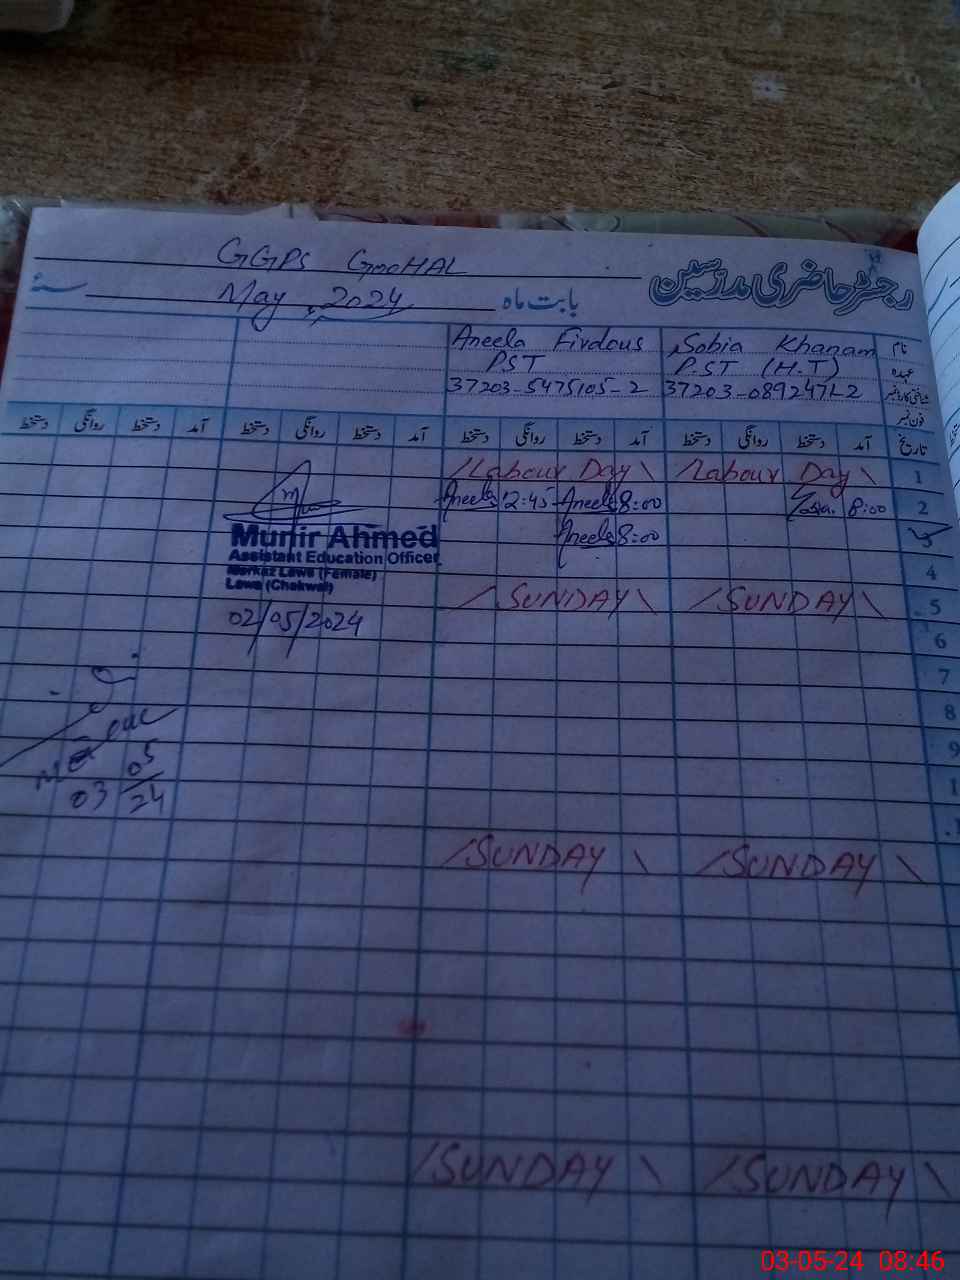 GGPS GooHAL
رجسٹر حاضری مدرسین
May, 2024 بابت ماہ
Aneela Firdous Sobia Khanam نام
PST PST (H.T) عہدہ
37203-5475105-2 37203-0892471-2 شناختی کارڈ نمبر
فون نمبر
تاریخ آمد دستخط روانگی دستخط آمد دستخط روانگی دستخط آمد دستخط روانگی دستخط آمد دستخط روانگی دستخط
Labour Day Labour Day 1
Aneela 12:45 Aneela 8:00 8:00 2
Aneela 8:00 3
4
SUNDAY SUNDAY 5
6
7
8
9
1
1
Munir Ahmed
Assistant Education Officer
Markaz Lawa (Female)
Lawa (Chakwal)
02/05/2024
03 05
24
SUNDAY SUNDAY
SUNDAY SUNDAY
03-05-24 08:46